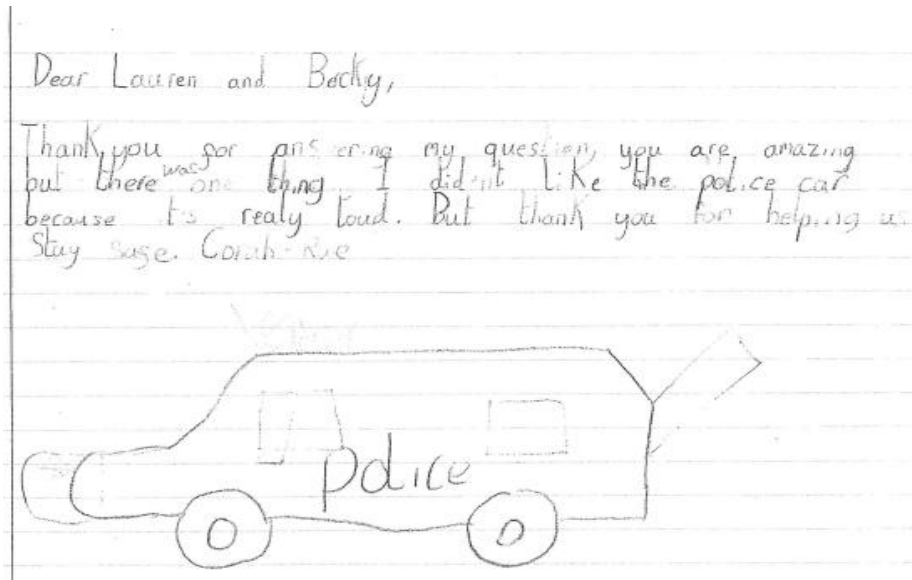 Dear Lauren and Becky,
Thank you for ansering my question, you are amazing
but there was one thing I did'nt like the police car
because it's realy loud. But thank you for helping us
Stay safe. Corah-Rae
Police